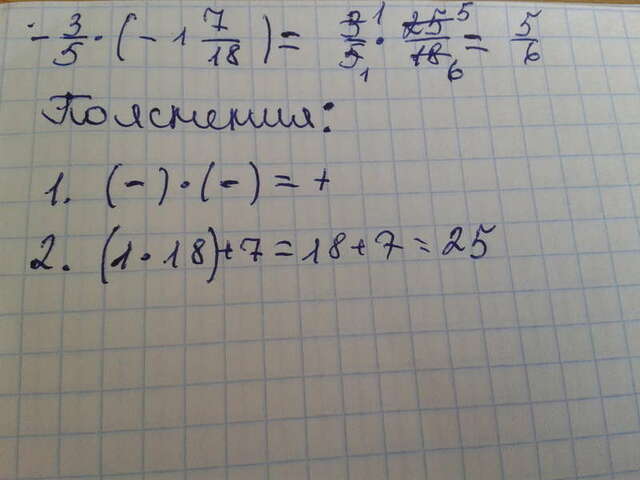 - 3/5 · (- 1 7/18) = 3/5 1 1 · 25/18 5 6 = 5/6
Пояснения:
1. (-) · (-) = +
2. (1 · 18) + 7 = 18 + 7 = 25